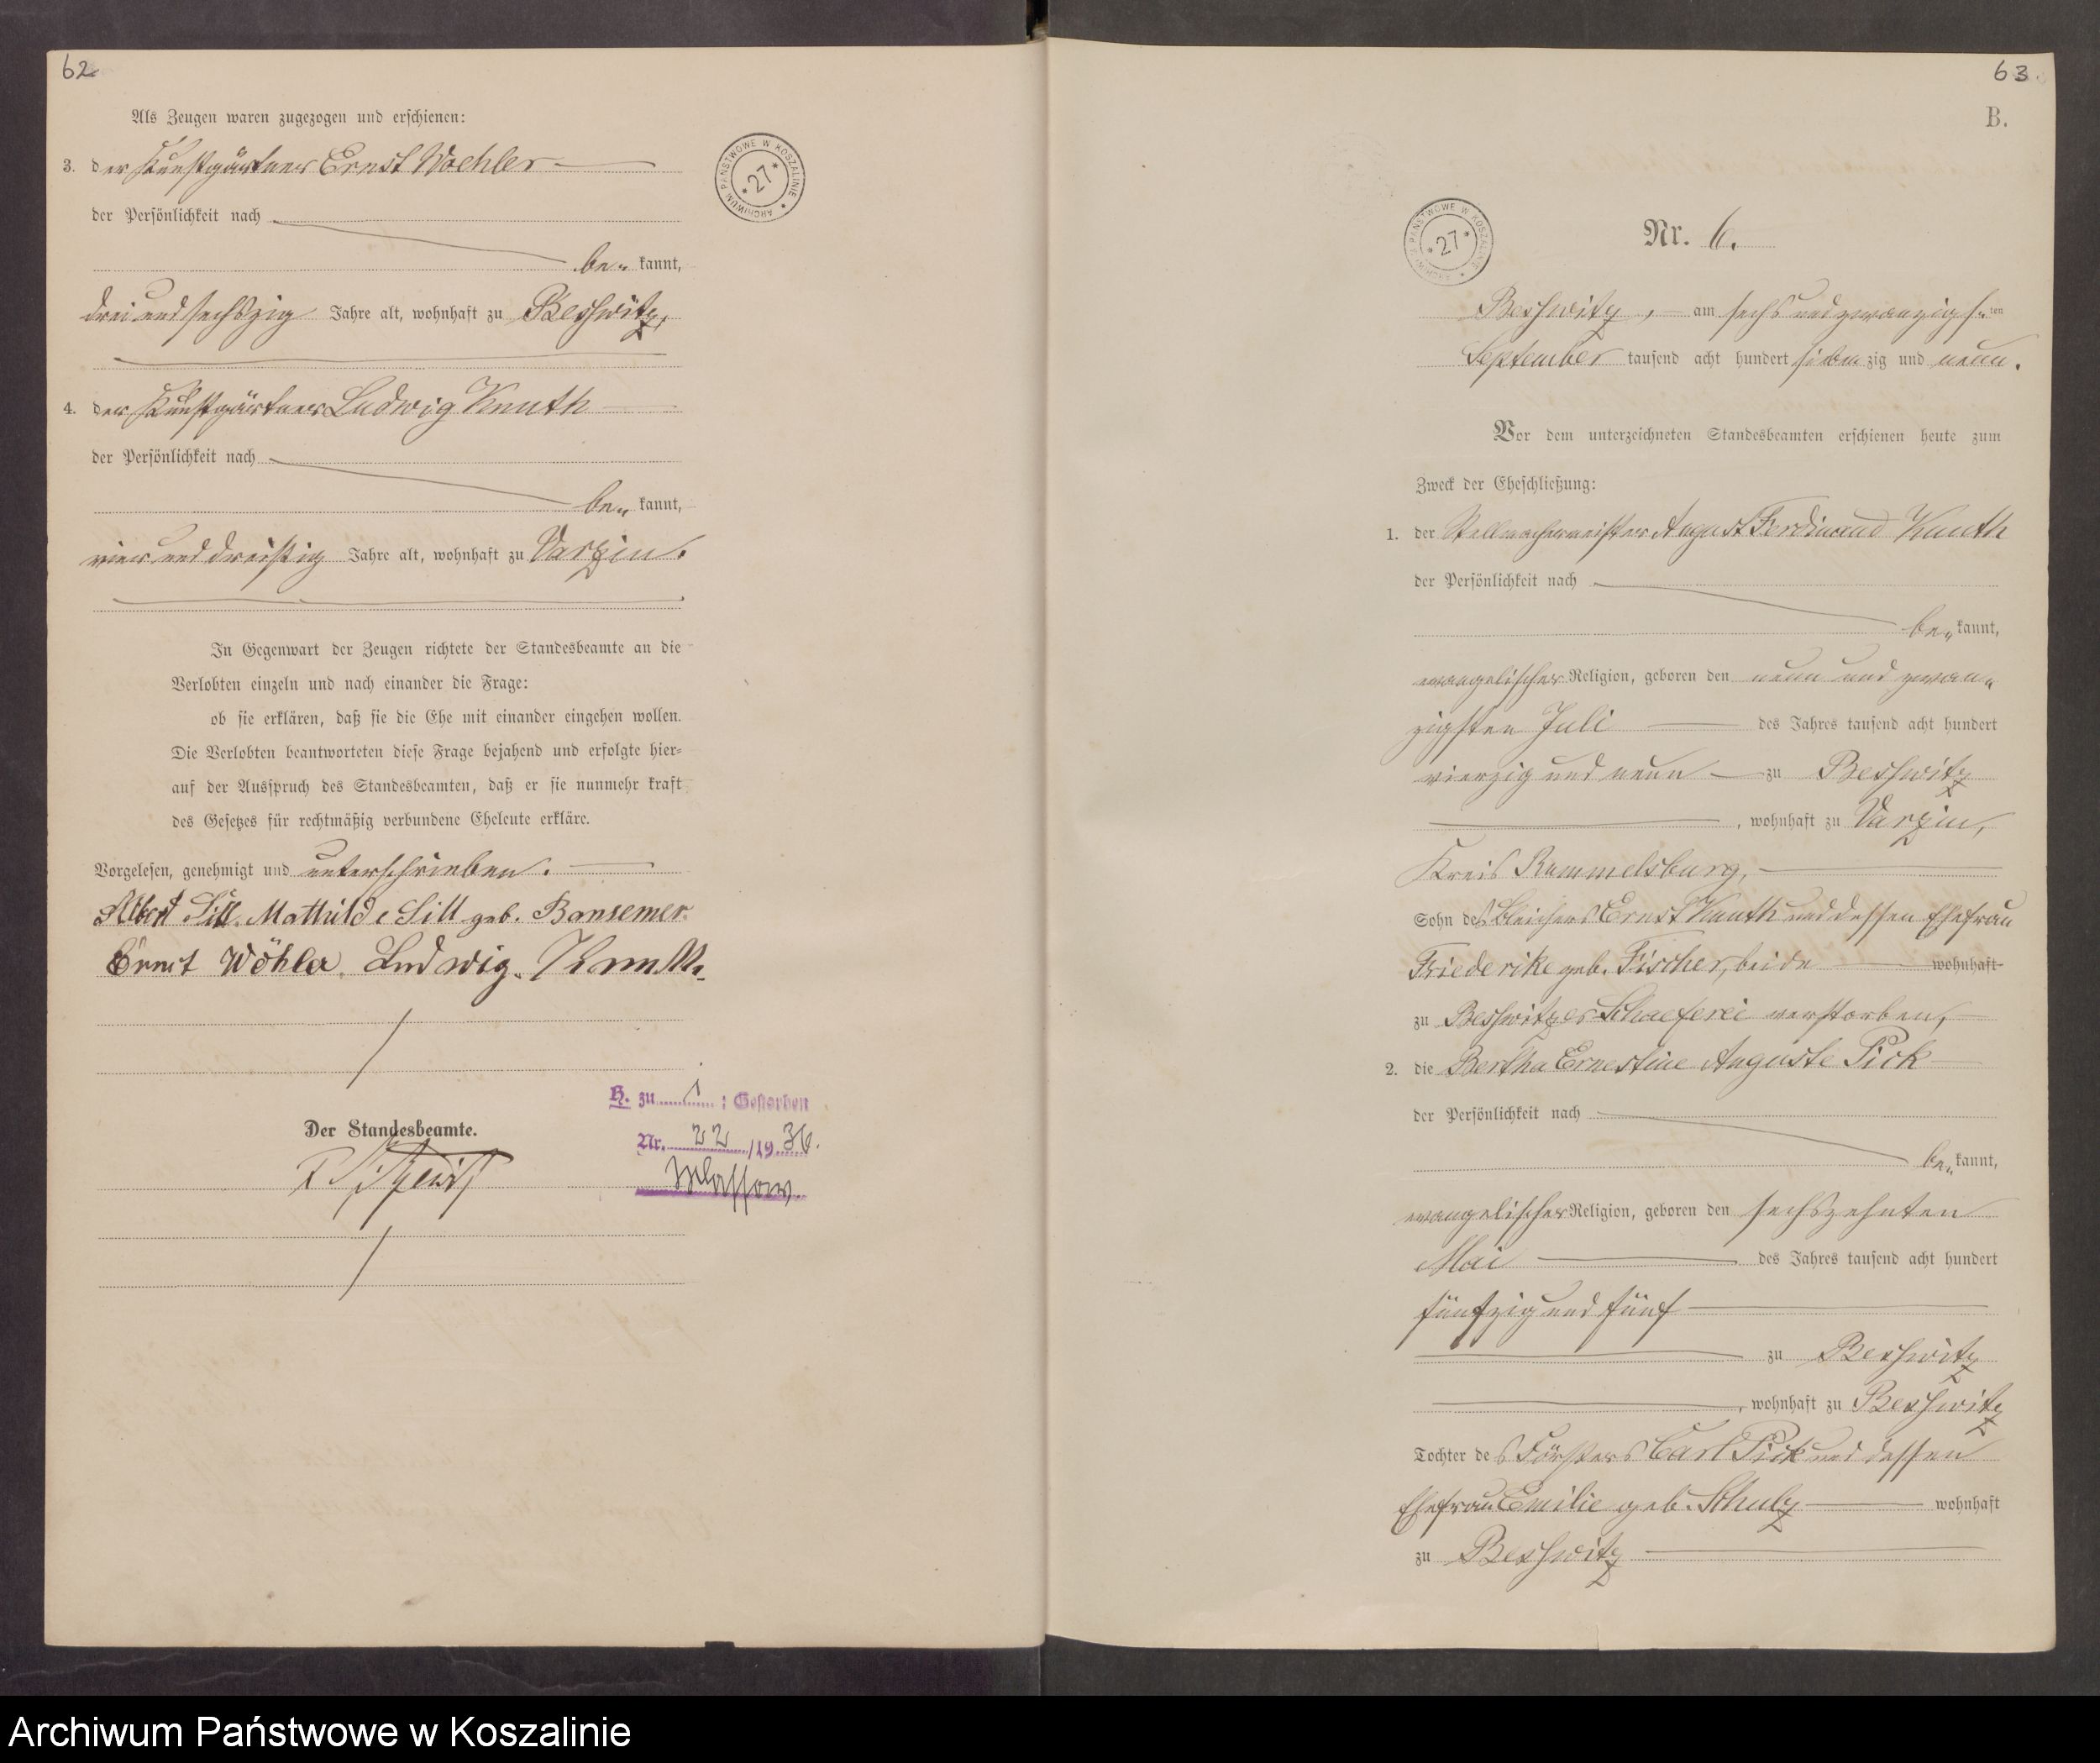 62
Als Zeugen waren zugezogen und erschienen:
3. der Kunstgärtner Ernst Woehler
der Persönlichkeit nach
be- kannt,
drei und sechszig Jahre alt, wohnhaft zu Beßwitz,
4. der Kunstgärtner Ludwig Knuth
der Persönlichkeit nach
be- kannt,
vier und dreißig Jahre alt, wohnhaft zu Varzin.
In Gegenwart der Zeugen richtete der Standesbeamte an die
Verlobten einzeln und nach einander die Frage:
ob sie erklären, daß sie die Ehe mit einander eingehen wollen.
Die Verlobten beantworteten diese Frage bejahend und erfolgte hier-
auf der Ausspruch des Standesbeamten, daß er sie nunmehr kraft
des Gesetzes für rechtmäßig verbundene Eheleute erkläre.
Vorgelesen, genehmigt und unterschrieben.
Albert Sill. Mathilde Sill geb. Bansemer
Ernst Wöhler. Ludwig. Knuth.
H. zu 1: Gestorben
Der Standesbeamte.
Nr. 22/1936.
ARCHIWUM PAŃSTWOWE W KOSZALINIE
*27*
63
B.
ARCHIWUM PAŃSTWOWE W KOSZALINIE
*27*
Nr. 6.
Beßwitz, am sechs und zwanzigs-ten
September tausend acht hundert siebenzig und neun.
Vor dem unterzeichneten Standesbeamten erschienen heute zum
Zweck der Eheschließung:
1. der Stellmachermeister August Ferdinand Knuth
der Persönlichkeit nach
be- kannt,
evangelischer Religion, geboren den neun und zwan-
zigsten Juli des Jahres tausend acht hundert
vierzig und neun zu Beßwitz
, wohnhaft zu Varzin,
Kreis Rummelsburg,
Sohn des Ernst Knuth und dessen Ehefrau
Friederike geb. Fischer, beide wohnhaft
zu Beßwitzer Schaeferei verstorben,
2. die Bertha Ernestine Auguste Pick
der Persönlichkeit nach
be- kannt,
evangelischer Religion, geboren den sechszehnten
Mai des Jahres tausend acht hundert
fünfzig und fünf
zu Beßwitz
, wohnhaft zu Beßwitz
Tochter des Försters Carl Pick und dessen
Ehefrau Emilie geb. Schulz wohnhaft
zu Beßwitz
Archiwum Państwowe w Koszalinie